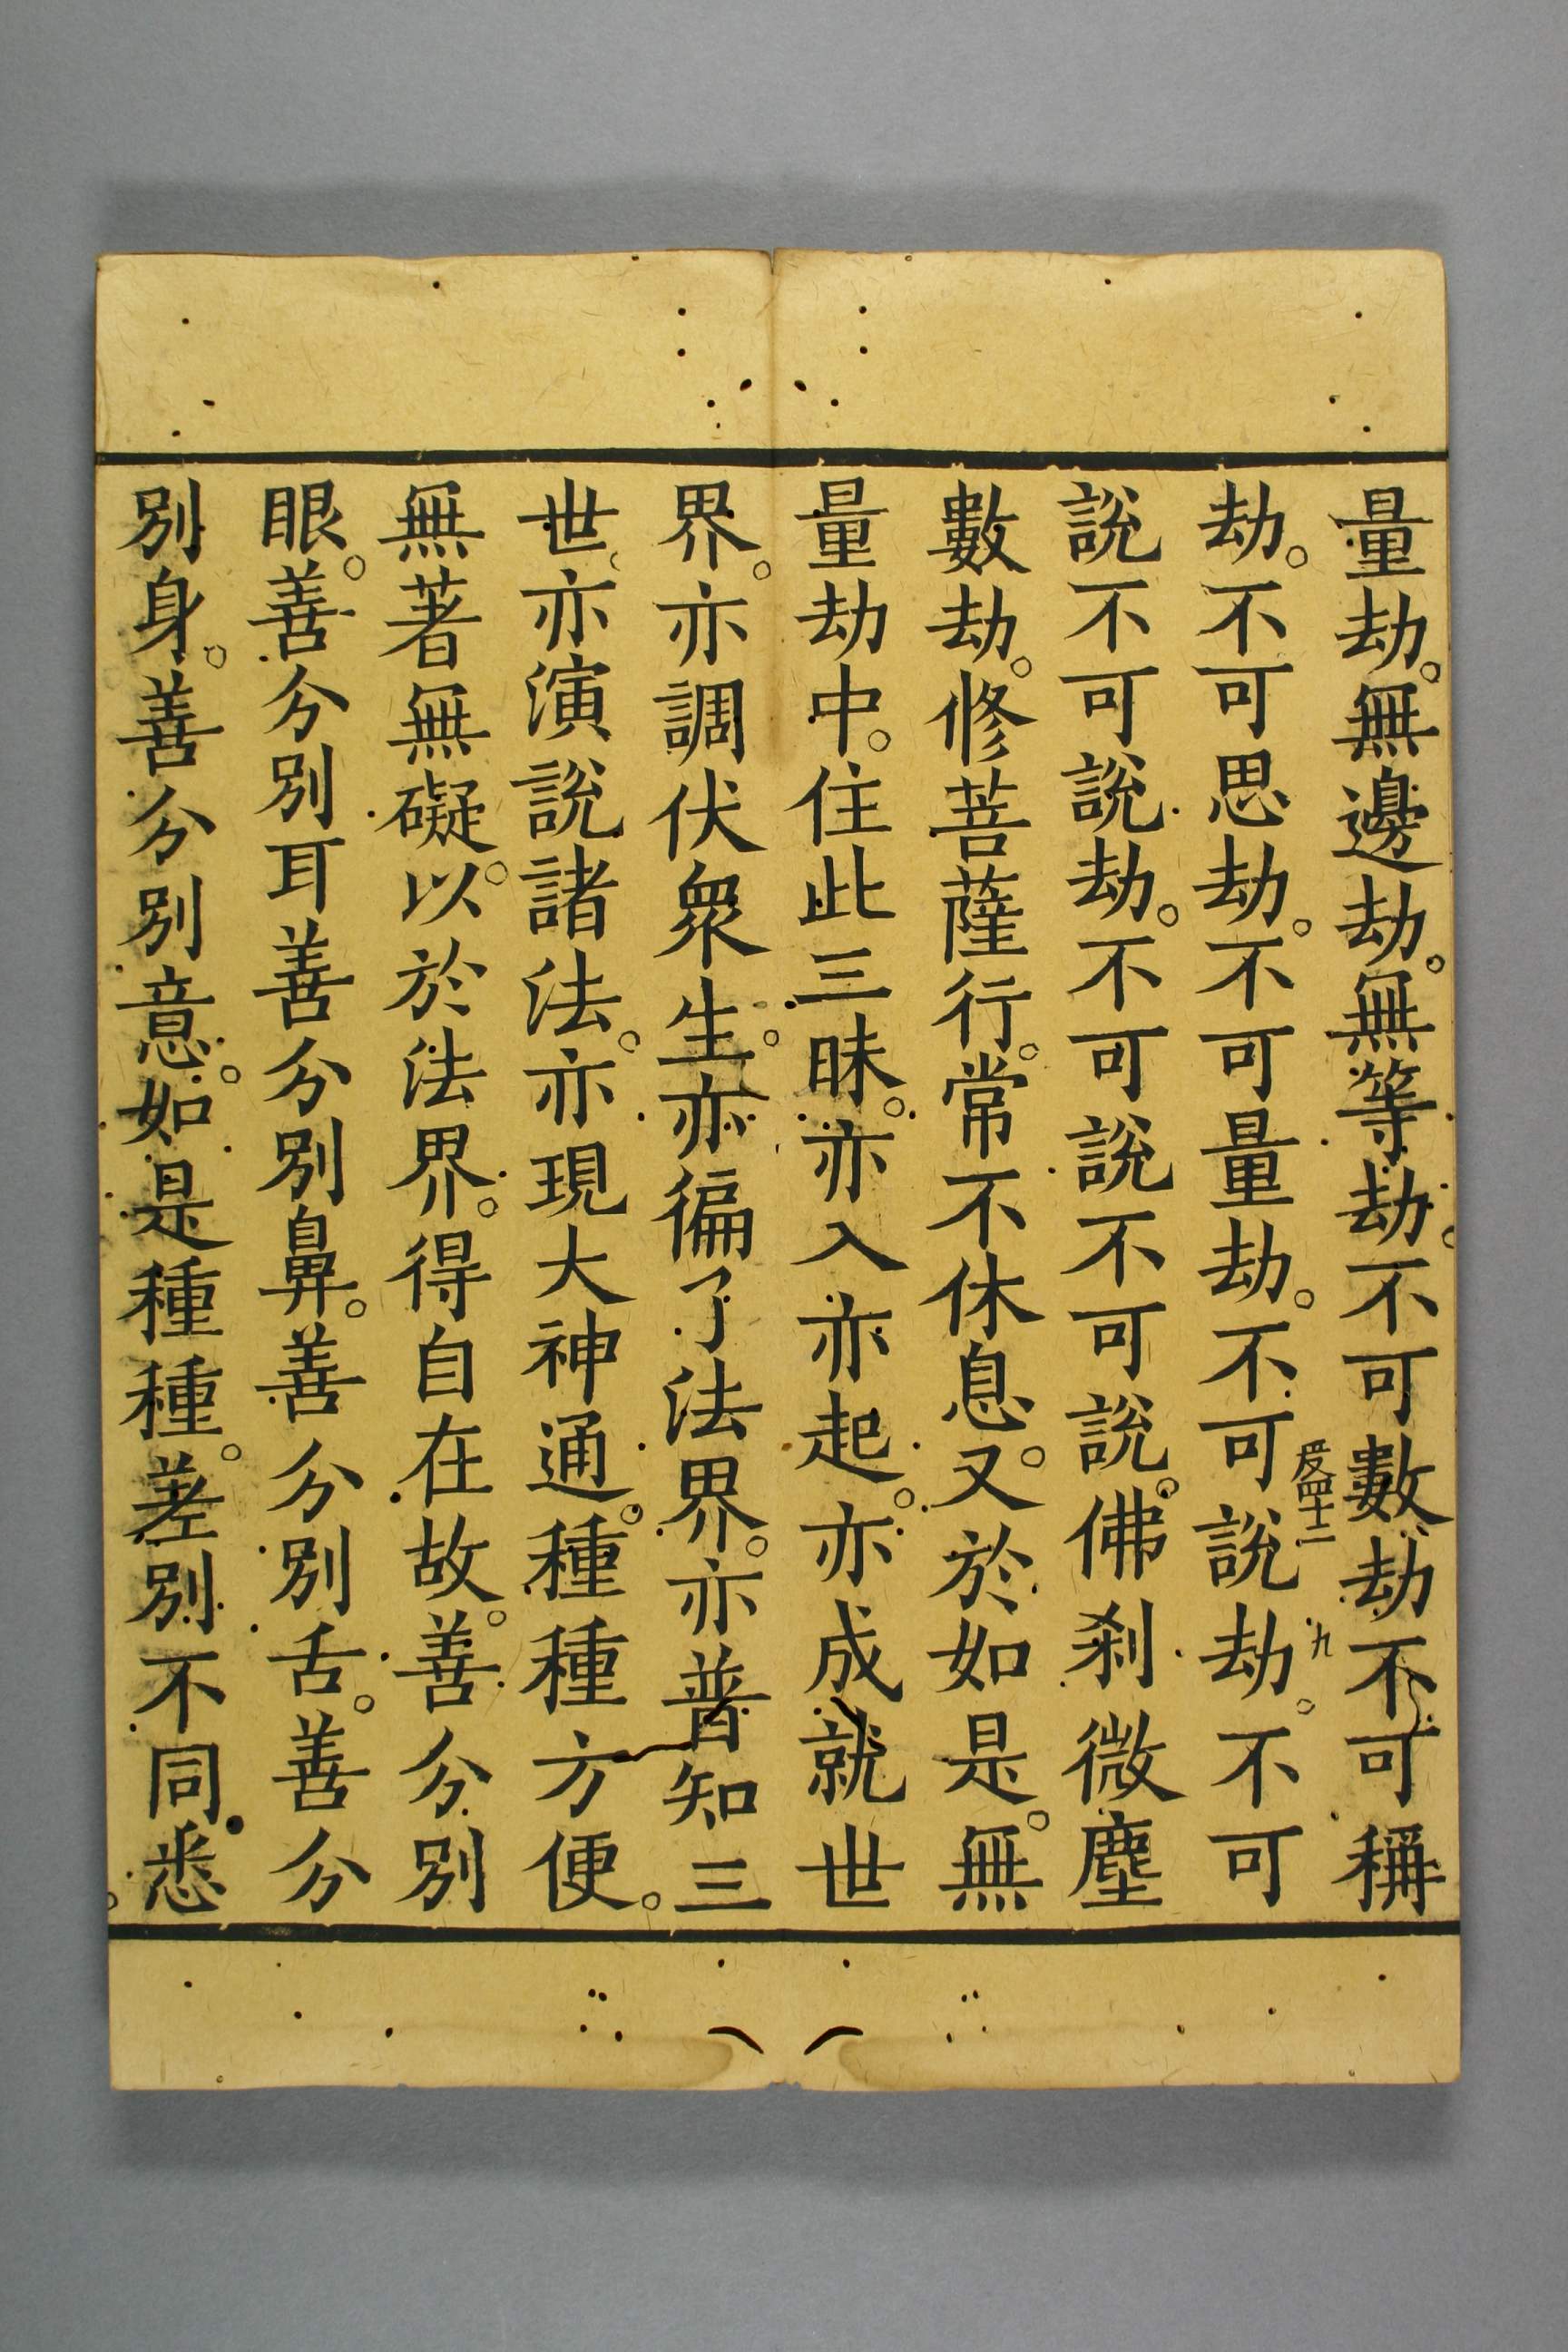 量劫。無邊劫。無等劫。不可數劫不可稱
劫。不可思劫。不可量劫。不可說劫。不可
四十二
九
說不可說劫。不可說不可說。佛刹微塵
數劫。修菩薩行。常不休息。又於如是。無
量劫中。住此三昧。亦入亦起。亦成就世
界。亦調伏衆生。亦徧了法界。亦普知三
世。亦演說諸法。亦現大神通。種種方便。
無著無礙。以於法界。得自在故。善分別
眼。善分別耳善分別鼻。善分別舌。善分
別身。善分別意。如是種種。差別不同悉